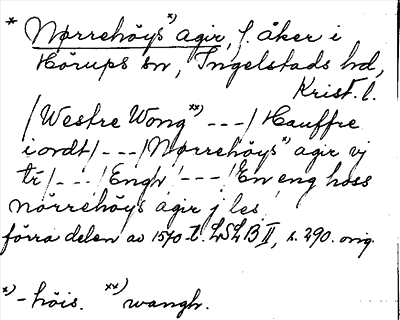 * Nørrehöys*) agir, f. åker i
Hörups sn, Ingelstads hd,
Krist. l.
/Westre Wong**) ---/ Hauffre
i ordt/---/Nørrehöys*) agir vj
tr/---/Engh /---/En eng hoss
nörrehöys agir j les
förra delen av 1570 t. LSLB II, s. 290. orig.
*) -höis. **) wangh.